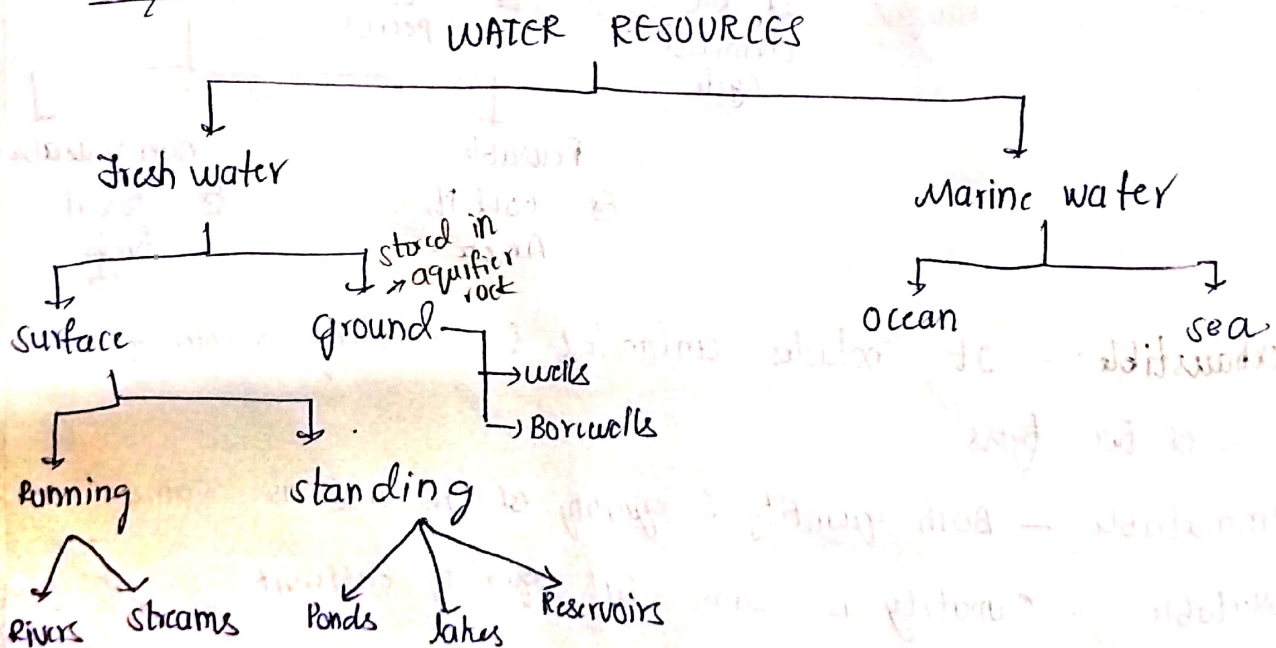 WATER RESOURCES
Fresh water
Marine water
stored in
aquifier
rock
surface
ground
ocean
sea
wells
Borewells
Running
standing
Rivers
streams
Ponds
lakes
Reservoirs